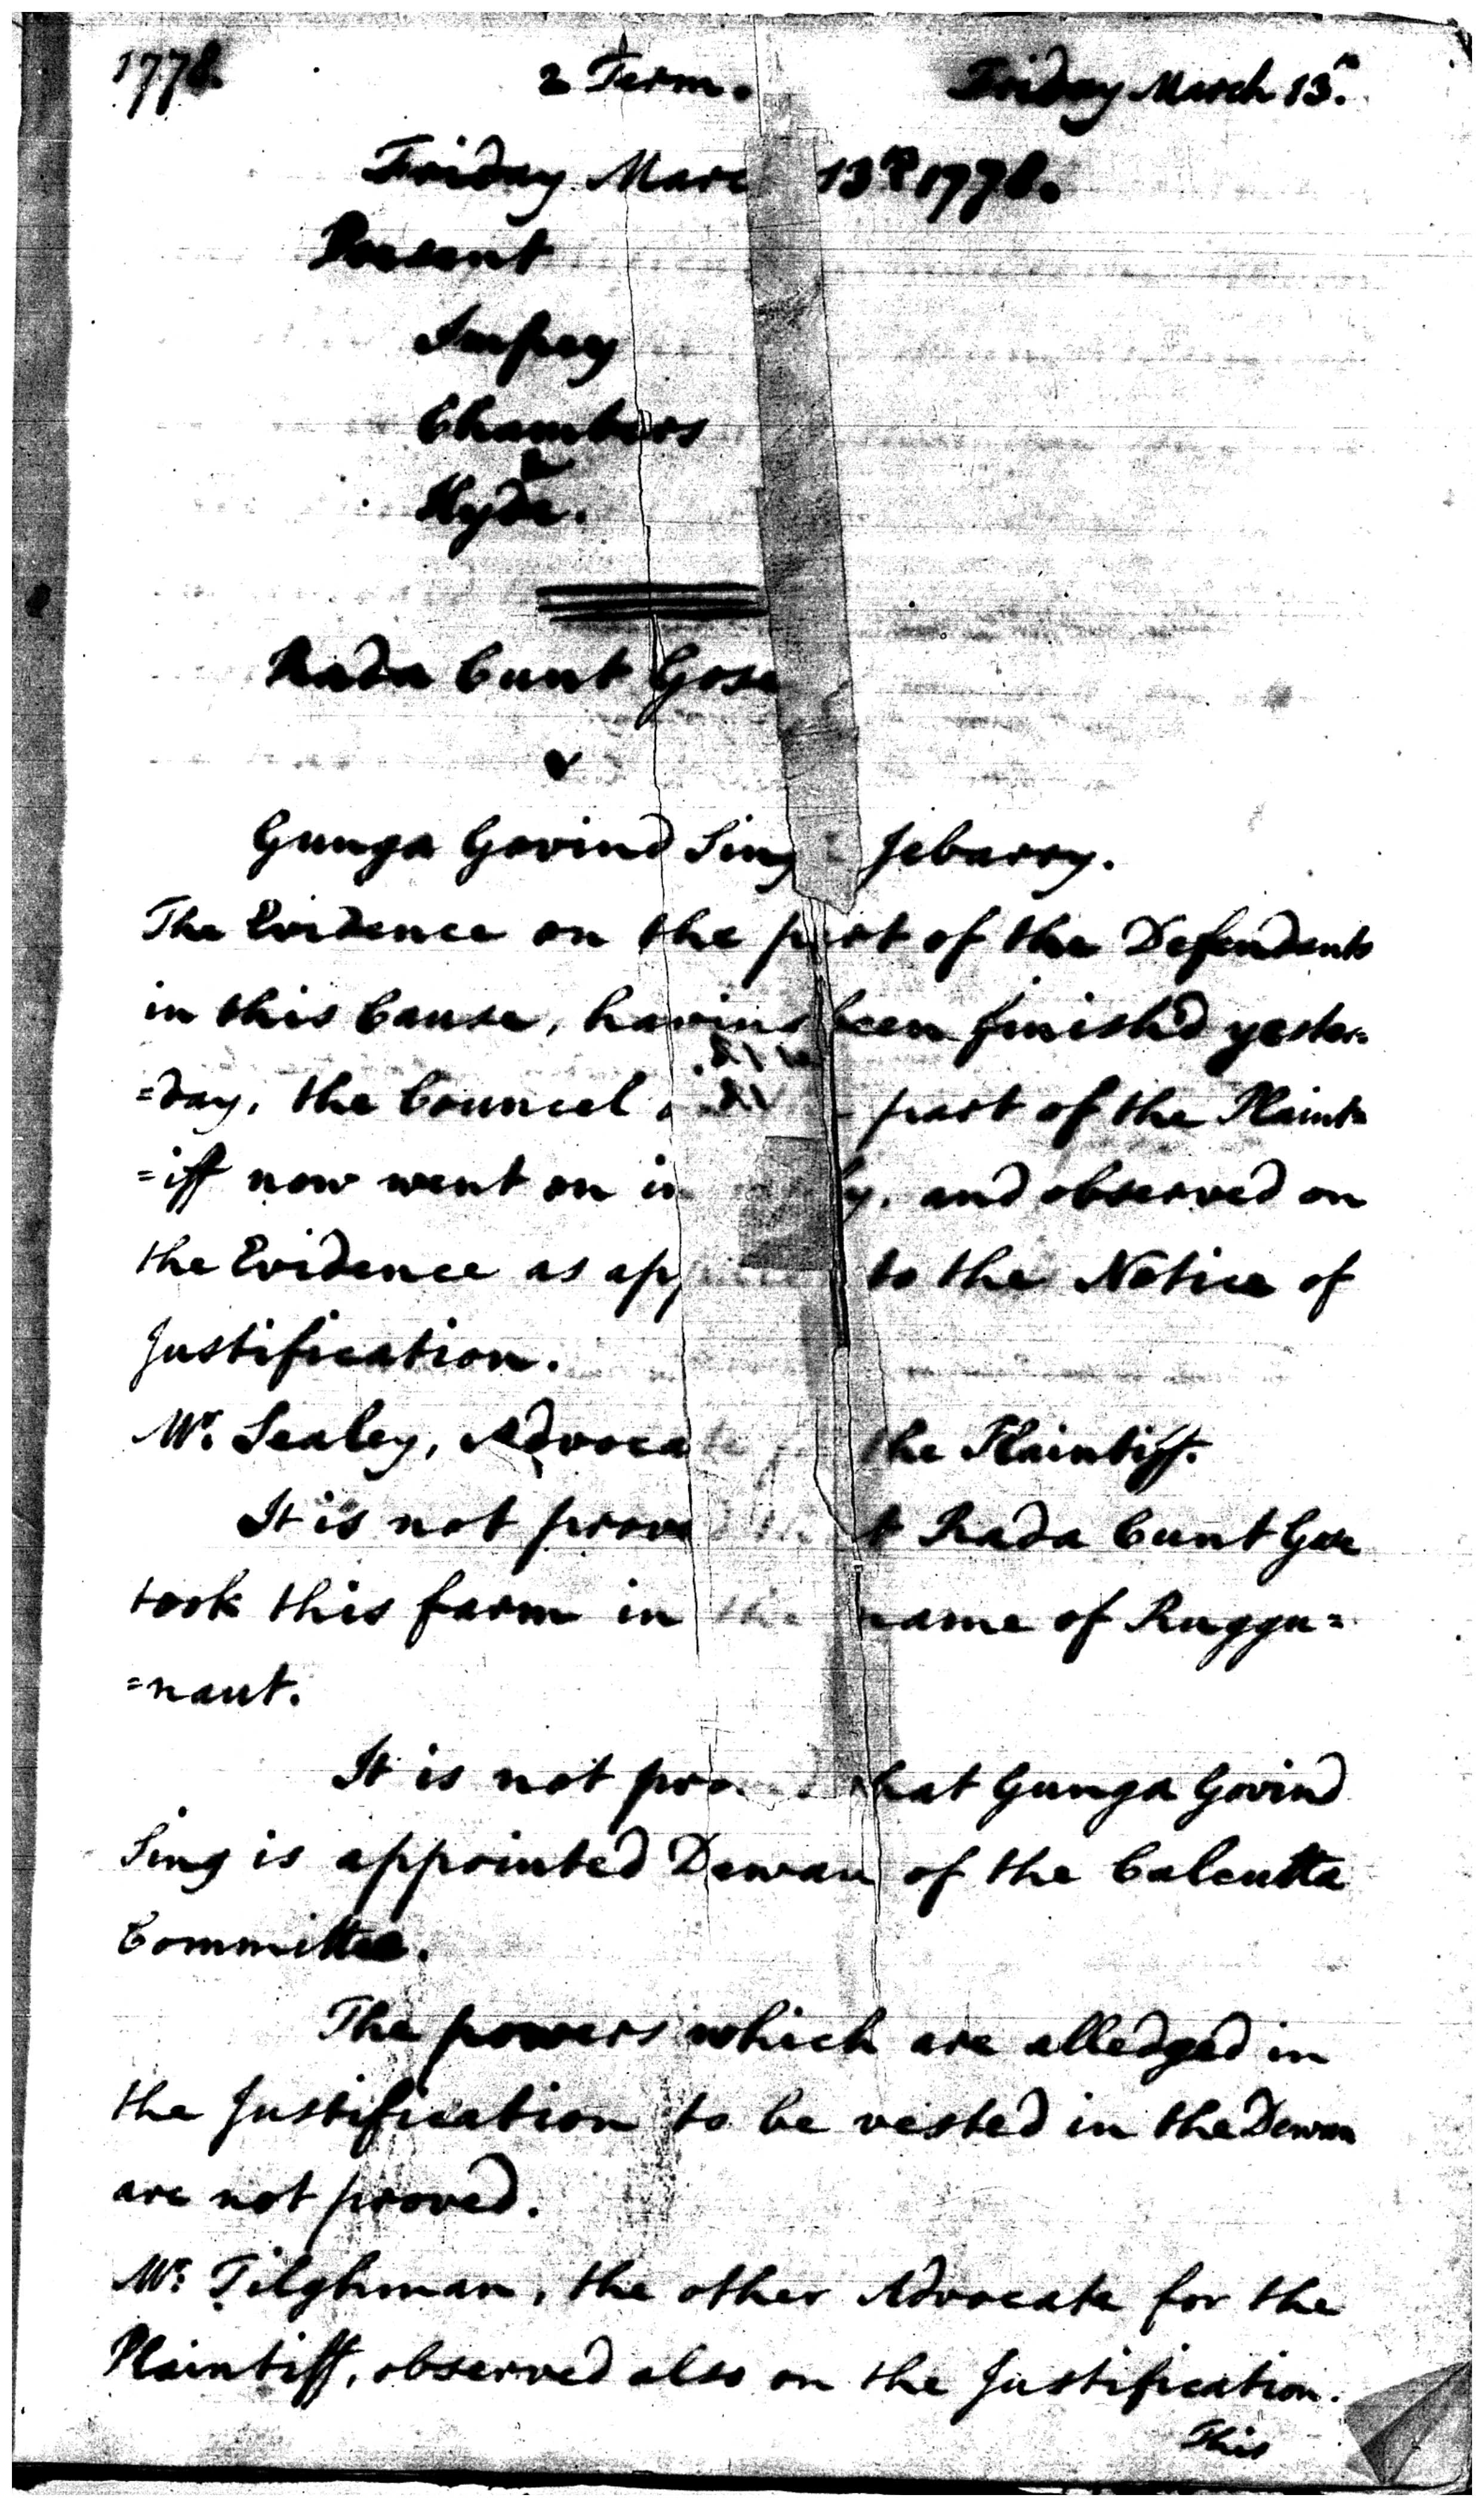 1778. 2 Term. Friday March 13.th
Friday Marc 13th 1778.
Present
Impey
Chambers
&
Hyde.
Rada Cunt Gose
v
Gunga Govind Sing Jebarry.
The Evidence on the part of the Defendents
in this Cause, having been finish'd yester=
=day, the Councel part of the Plaint=
=iff now went on in and observed on
the Evidence as to the Notice of
Justification.
Mr. Sealey, Advocate for the Plaintiff.
It is not prov'd that Rada Cunt Gose
took this farm in the name of Ruggu=
=naut.
It is not that Gunga Govind
Sing is appointed Dewan of the Calcutta
Committee.
The powers which are alledged in
the Justification to be vested in the Dewan
are not proved.
Mr. Tilghman, the other Advocate for the
Plaintiff, observed also on the Justification.
This